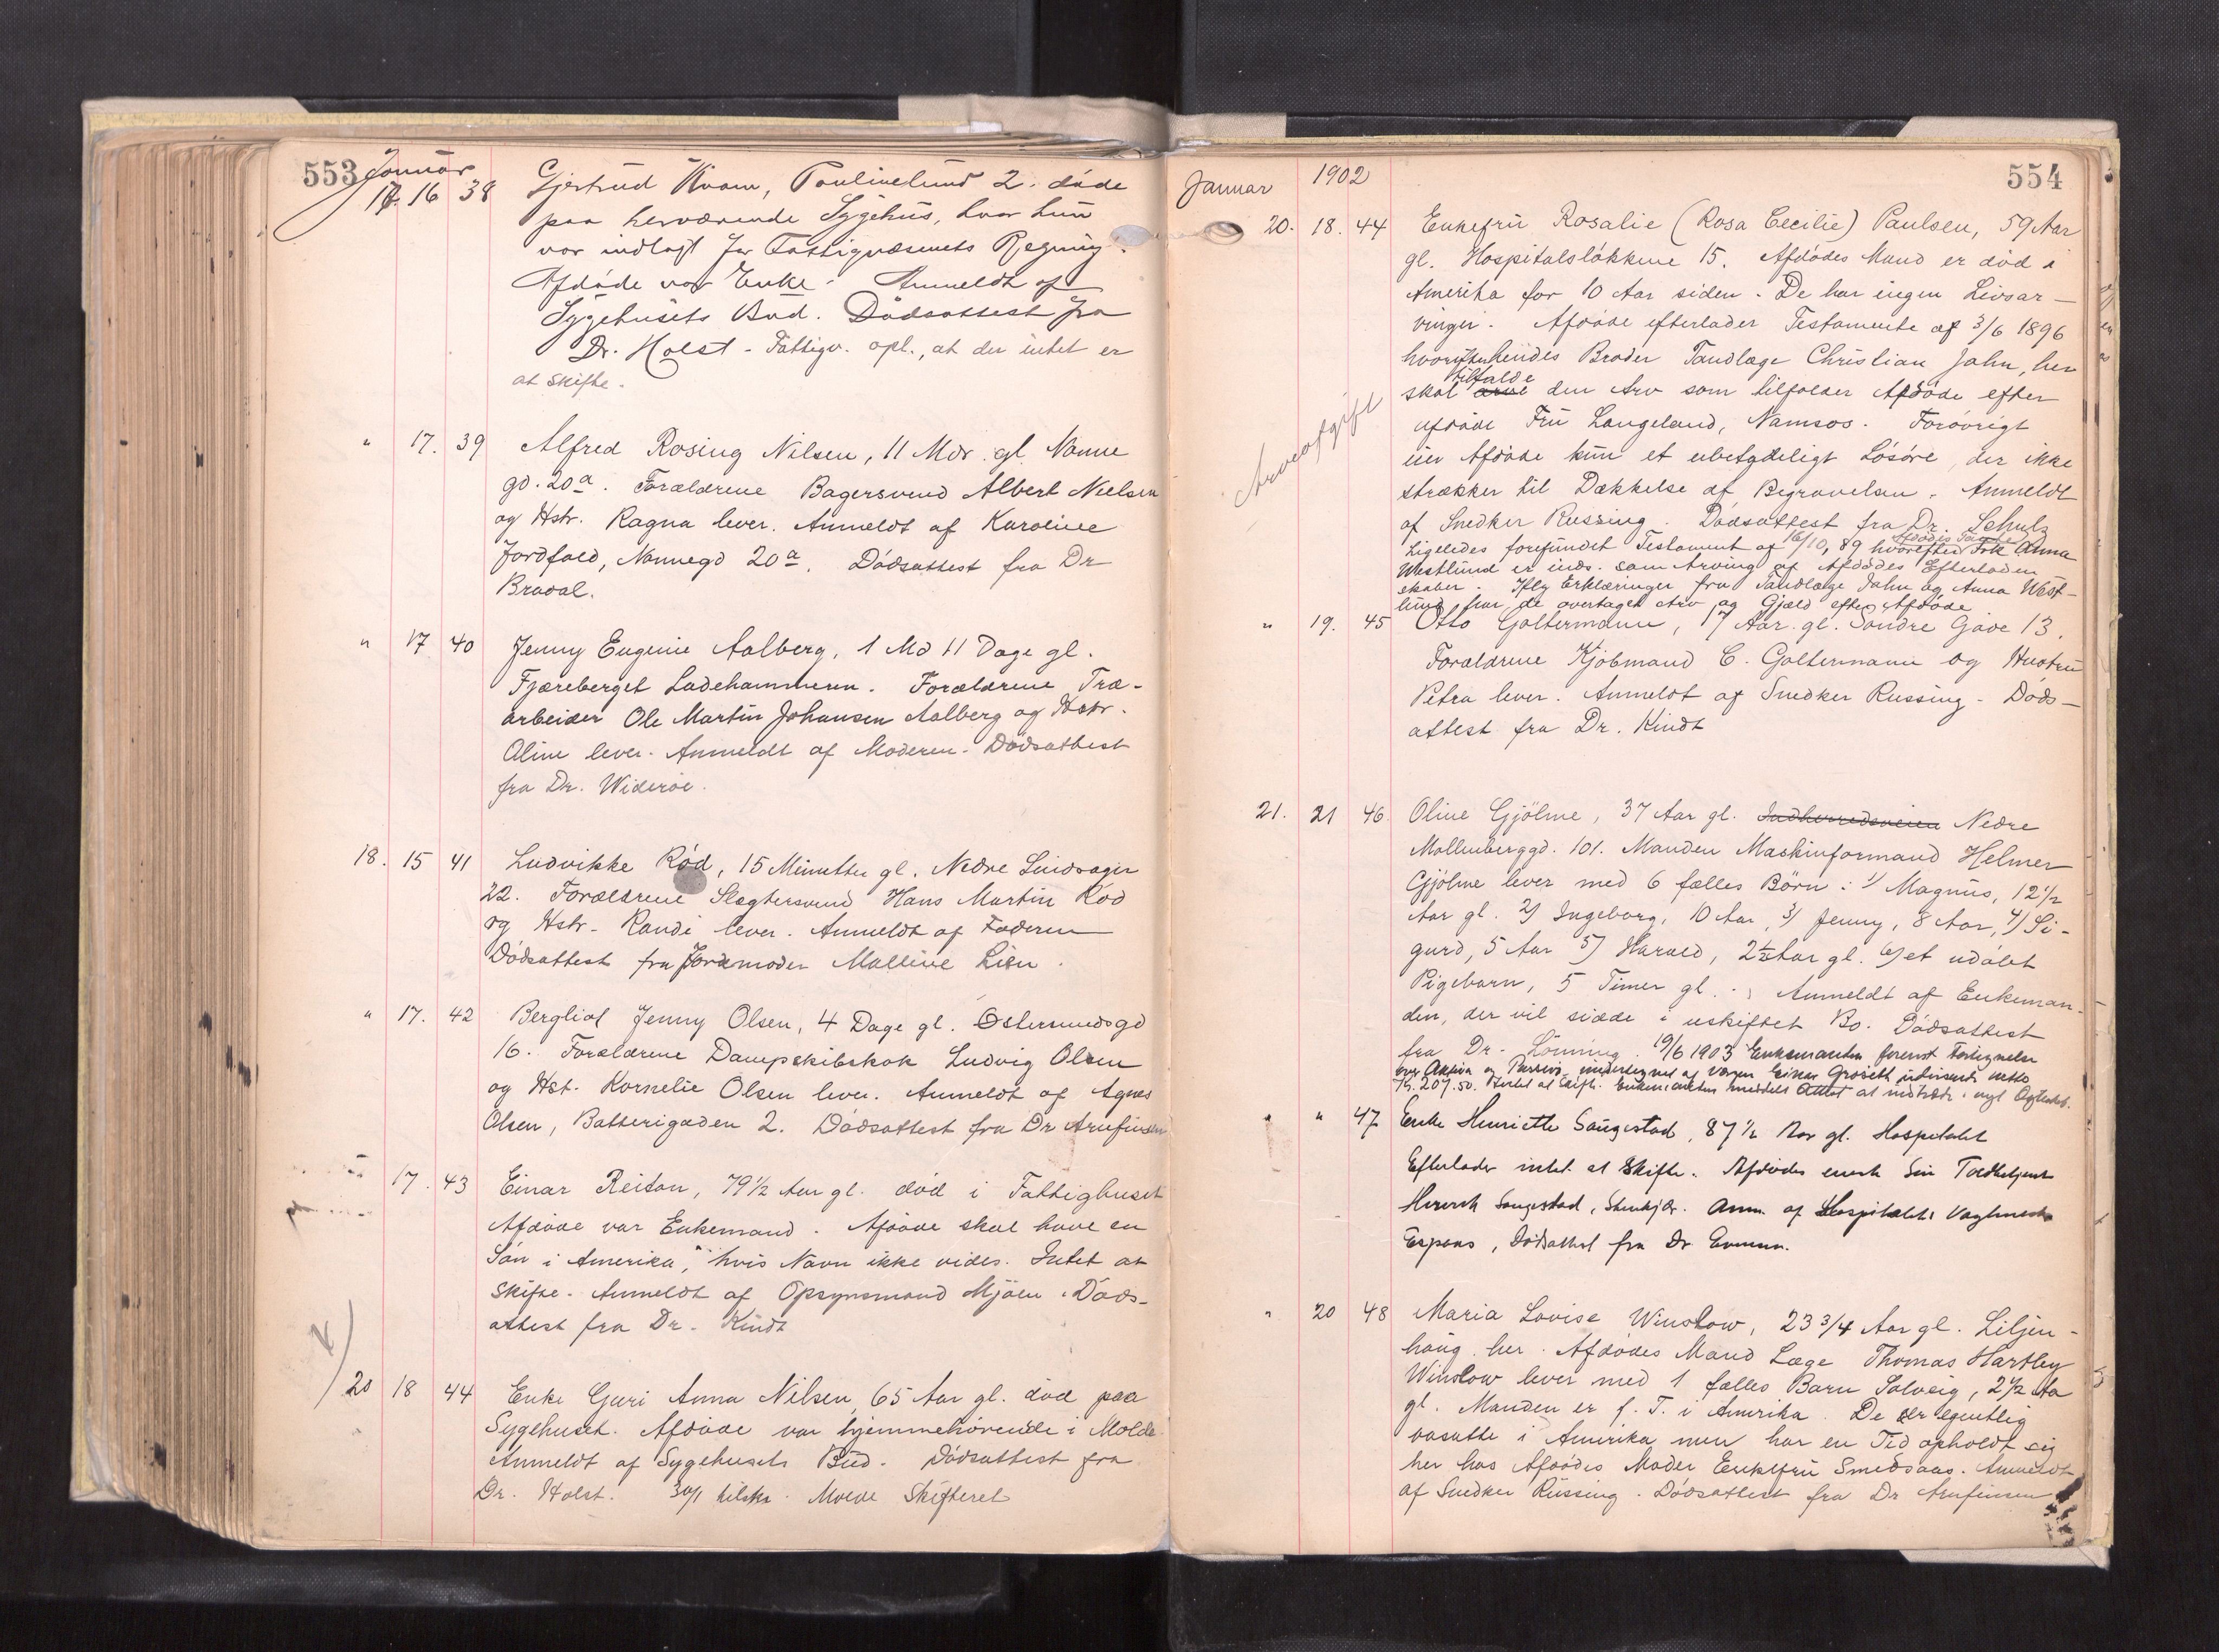 553 Januar
17. 16 38 Gjertrud Kvam, Paulinelund 2. døde
paa herværende Sygehus, hvor hun
var indlagt for Fattigvæsenets Regning.
Afdøde var Enke. Anmeldt af
Sygehusets Bud. Dødsattest fra
Dr. Holst - Fattigv. opl., at der intet er
at skifte.
" 17. 39 Alfred Rosing Nilsen, 11 Mdr. gl. Nonne
gd. 20a. Forældrene Bagersvend Albert Nielsen
og Hstr. Ragna lever. Anmeldt af Karoline
Jordfald, Nonnegd 20a. Dødsattest fra Dr
Bradal.
" 17 40 Jenny Eugenie Aalberg, 1 Md 11 Dage gl.
Fjæreberget Ladehammeren. Forældrene Træ-
arbeider Ole Martin Johansen Aalberg og Hstr.
Oline lever. Anmeldt af Moderen. Dødsattest
fra Dr. Widerøe.
18. 15 41 Ludvikke Rød, 15 Minutter gl. Nedre Lindsager
22. Forældrene Slagtersvend Hans Martin Rød
og Hstr. Randi lever. Anmeldt af Faderen
Dødsattest fra Jordmoder Malline Lien.
" 17. 42 Bergliot Jenny Olsen, 4 Dage gl. Østersundsgd
16. Forældrene Dampskibskok Ludvig Olsen
og Hst. Kornelie Olsen lever. Anmeldt af Agnes
Olsen, Batterigaden 2. Dødsattest fra Dr Arnfinsen
17. 43 Einar Reitan, 79 1/2 Aar gl. død i Fattighuset
Afdøde var Enkemand. Afdøde skal have en
Søn i Amerika, hvis Navn ikke vides. Intet at
skifte. Anmeldt af Opsynsmand Mjøen. Døds-
attest fra Dr. Kindt
20 18 44 Enke Guri Anna Nilsen, 65 Aar gl. død paa
Sygehuset. Afdøde var hjemmehørende i Molde.
Anmeldt af Sygehusets Bud. Dødsattest fra
Dr. Holst. 30/1 tilskr. Molde Skifteret
Januar 1902 554
20. 18. 44 Enkefru Rosalie (Rosa Cecilie) Paulsen, 59 Aar
gl. Hospitalsløkkene 15. Afdødes Mand er død i
Amerika for 10 Aar siden. De har ingen Livsar-
vinger. Afdøde efterlader Testamente af 3/6 1896
hvorefter hendes Broder Tandlæge Christian Jahn, her
tilfalde
skal arve den Arv som tilfalder Afdøde efter
Arveafgift
afdøde Fru Langeland, Namsos. Forøvrigt
eier Afdøde kun et ubetydeligt Løsøre, der ikke
strækker til Dækkelse af Begravelsen. Anmeldt
af Snedker Russing. Dødsattest fra Dr. Schulz
Ligeledes forefundet Testament af 16/10, 89 hvorefter Frk Anna
Westlund er inds. som Arving af Afdødes Efterladen-
skaber. Iflg Erklæringer fra Tandlæge Jahn og Anna West-
lund har de overtaget Arv og Gjæld efter Afdøde
" 19. 45 Otto Goltermann, 17 Aar gl. Søndre Gade 13.
Forældrene Kjøbmand C. Goltermann og Hustru
Petra lever. Anmeldt af Snedker Russing. Døds-
attest fra Dr. Kindt
21. 21 46 Oline Gjølme, 37 Aar gl. Indherredsveien Nedre
Møllenberggd. 101. Manden Maskinformand Helmer
Gjølme lever med 6 fælles Børn: 1/ Magnus, 12 1/2
Aar gl. 2) Ingeborg, 10 Aar, 3/ Jenny, 8 Aar, 4) Si-
gurd, 5 Aar 5) Harald, 2 1/2 Aar gl. 6) et udøbt
Pigebarn, 5 Timer gl. Anmeldt af Enkeman-
den, der vil sidde i uskiftet Bo. Dødsattest
fra Dr. Lønning. 19/6 1903 Enkemanden forevist Fortegnelse
over Aktiva og Passiva, undertegnet af Værgen Einar Groseth udvisende netto
Kr. 207.50. Intet at Skifte. Enkemanden meddelt Attest at indtræde i nyt Ægteskab.
" " 47 Enke Henriette Saugestad, 87 1/2 Aar gl. Hospitalet
Efterlader intet at Skifte. Afdødes eneste Søn Toldbetjent
Henrik Saugestad, Stenkjær. Anm. af Hospitalets Vagtmester
Espaas, Dødsattest fra Dr
" 20 48 Maria Lovise Winslow, 23 3/4 Aar gl. Liljen-
haug her. Afdødes Mand Læge Thomas Hartley
Winslow lever med 1 fælles Barn Solveig, 2 1/2 Aa
gl. Manden er f. T. i Amerika. De er egentlig
bosatte i Amerika men har en Tid opholdt sig
her hos Afdødes Moder Enkefru Smedsaas. Anmeldt
af Snedker Russing. Dødsattest fra Dr Arnfinsen